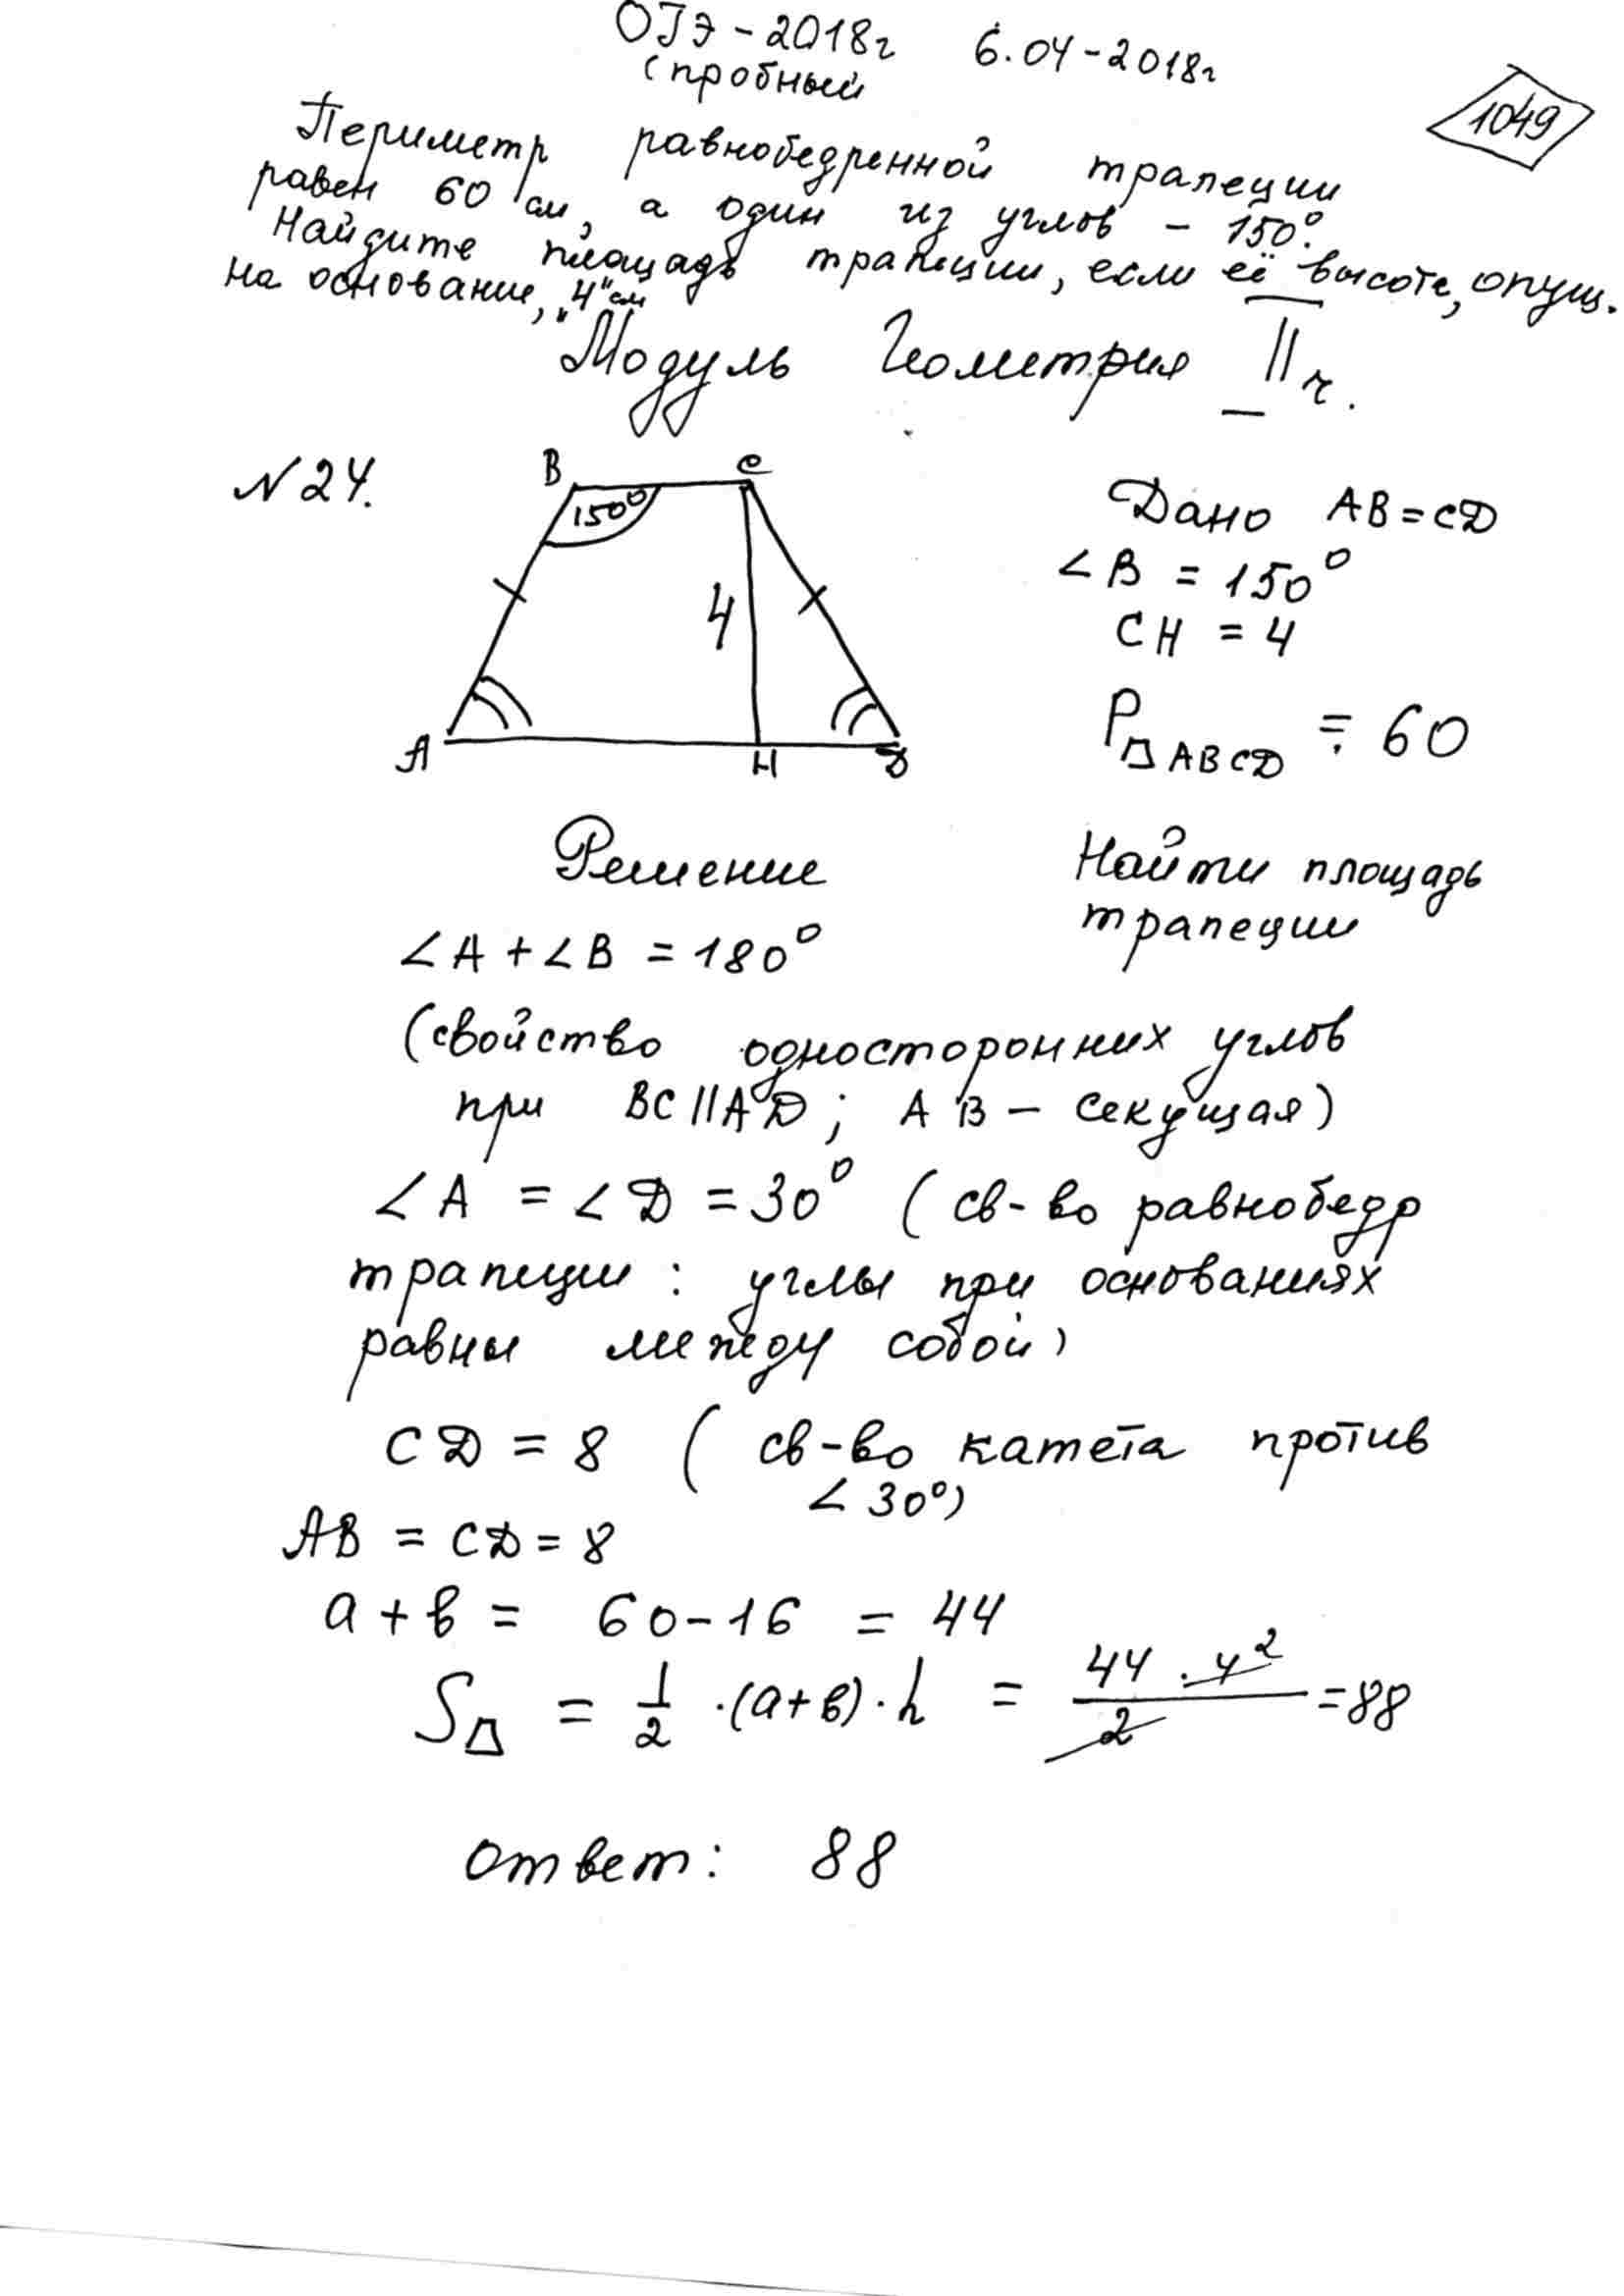 ОГЭ - 2018г 6.04-2018г
(пробный
1049
Периметр равнобедренной трапеции
равен 60 см, а один из углов - 150°.
Найдите площадь трапеции, если её высота, опущ.
на основание, "4" см
Модуль Геометрия II ч.
N 24.
B C
150°
4
A H D
Дано AB = CD
∠B = 150°
CH = 4
P ABCD = 60
Найти площадь
трапеции
Решение
∠A + ∠B = 180°
(свойство односторонних углов
при BC || AD; AB - секущая)
∠A = ∠D = 30° (св-во равнобедр
трапеции: углы при основаниях
равны между собой)
CD = 8 (св-во катета против
∠30°)
AB = CD = 8
a + b = 60 - 16 = 44
S = 1/2 · (a + b) · h = 44 · 4 2 / 2 = 88
Ответ: 88